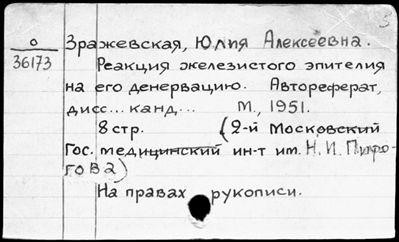 5
о Зражевская, Юлия Алексеевна.
36173 Реакция железистого эпителия
на его денервацию. Автореферат,
дисс... канд... М., 1951.
8 стр. (2-й Московский
Гос. медицинский ин-т им. Н. И. Пиро-
гова)
На правах рукописи.